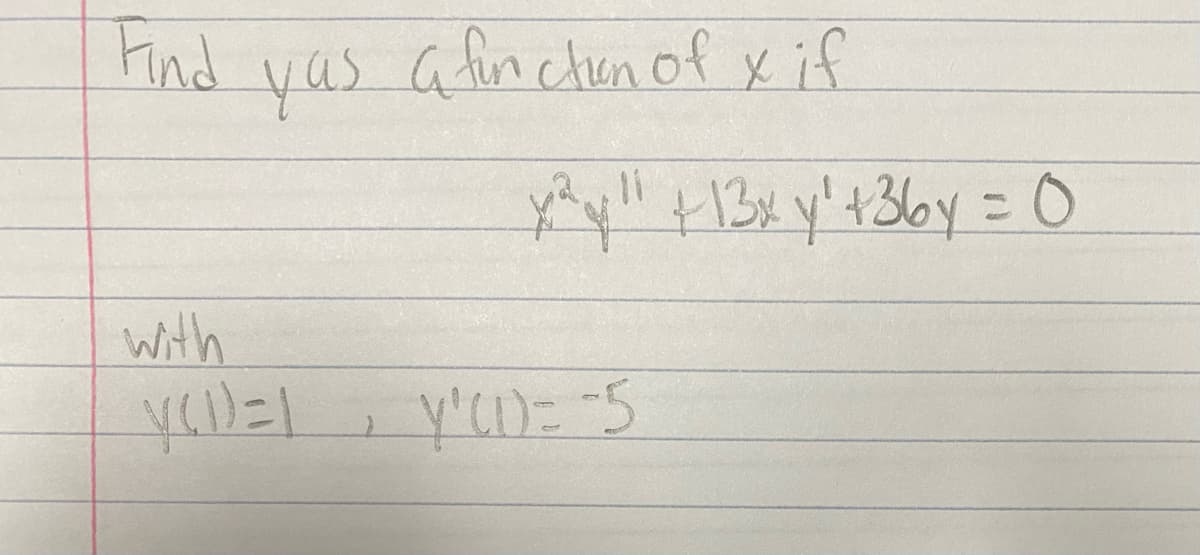 Find y as a function of x if
x²y'' + 13xy' + 36y = 0
with
y(1)=1 , y'(1)= -5